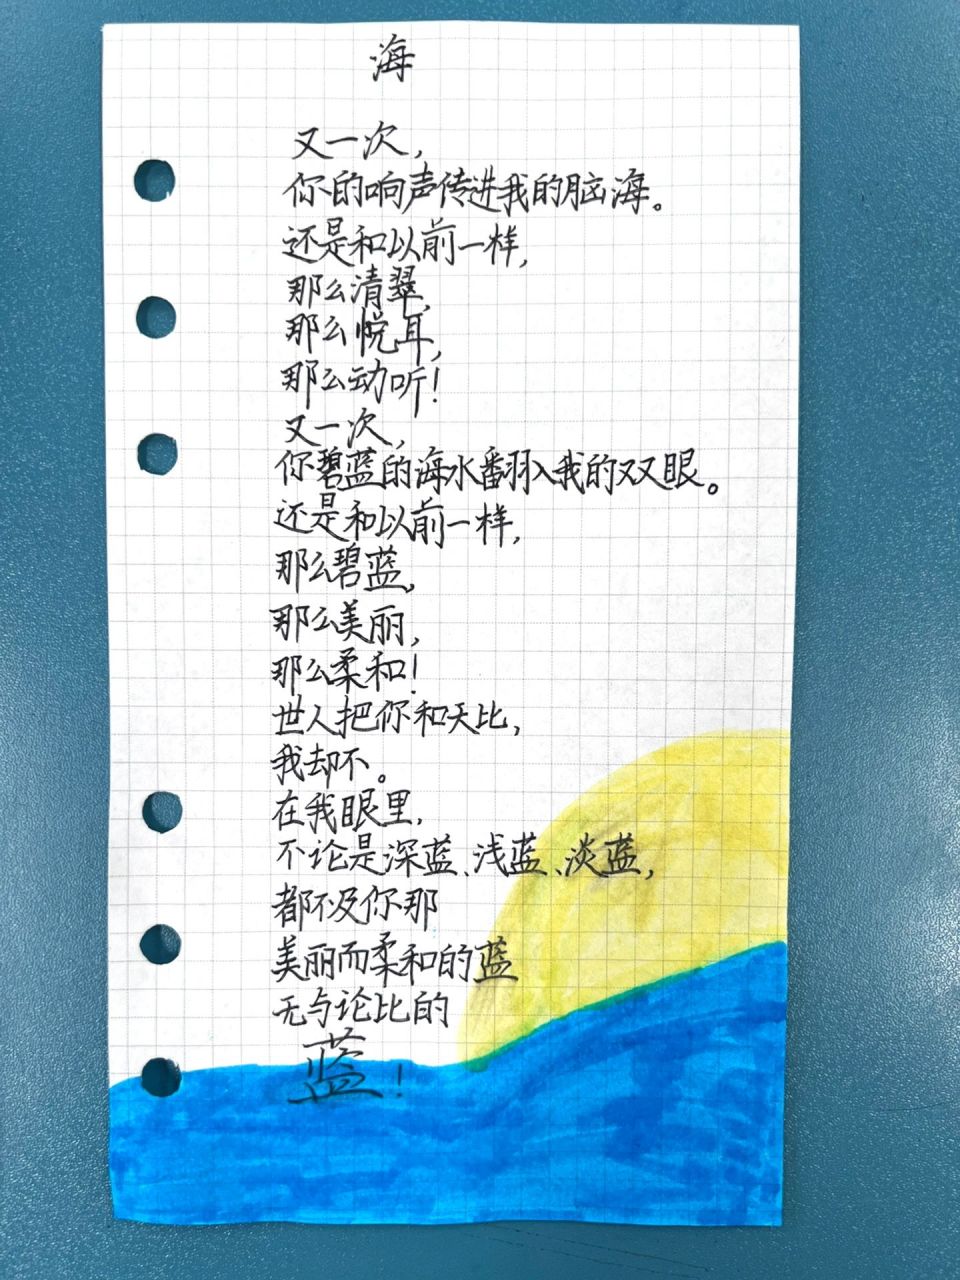 海
又一次，
你的响声传进我的脑海。
还是和以前一样，
那么清翠，
那么悦耳，
那么动听！
又一次，
你碧蓝的海水翻入我的双眼。
还是和以前一样，
那么碧蓝，
那么美丽，
那么柔和！
世人把你和天比，
我却不。
在我眼里，
不论是深蓝、浅蓝、淡蓝，
都不及你那
美丽而柔和的蓝
无与论比的
蓝！